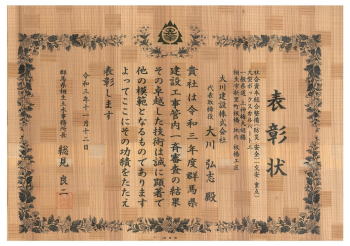 表彰状
社会資本総合整備(防災・安全)(交安重点)
大川建設株式会社
代表取締役 大川 弘志 殿
貴社は令和三年度群馬県
建設工事管内一斉審査の結果
その卓越した技術は誠に顕著で
他の模範となるものであります
よってここにその功績をたたえ
表彰します
令和三年十一月十二日
群馬県桐生土木事務所長